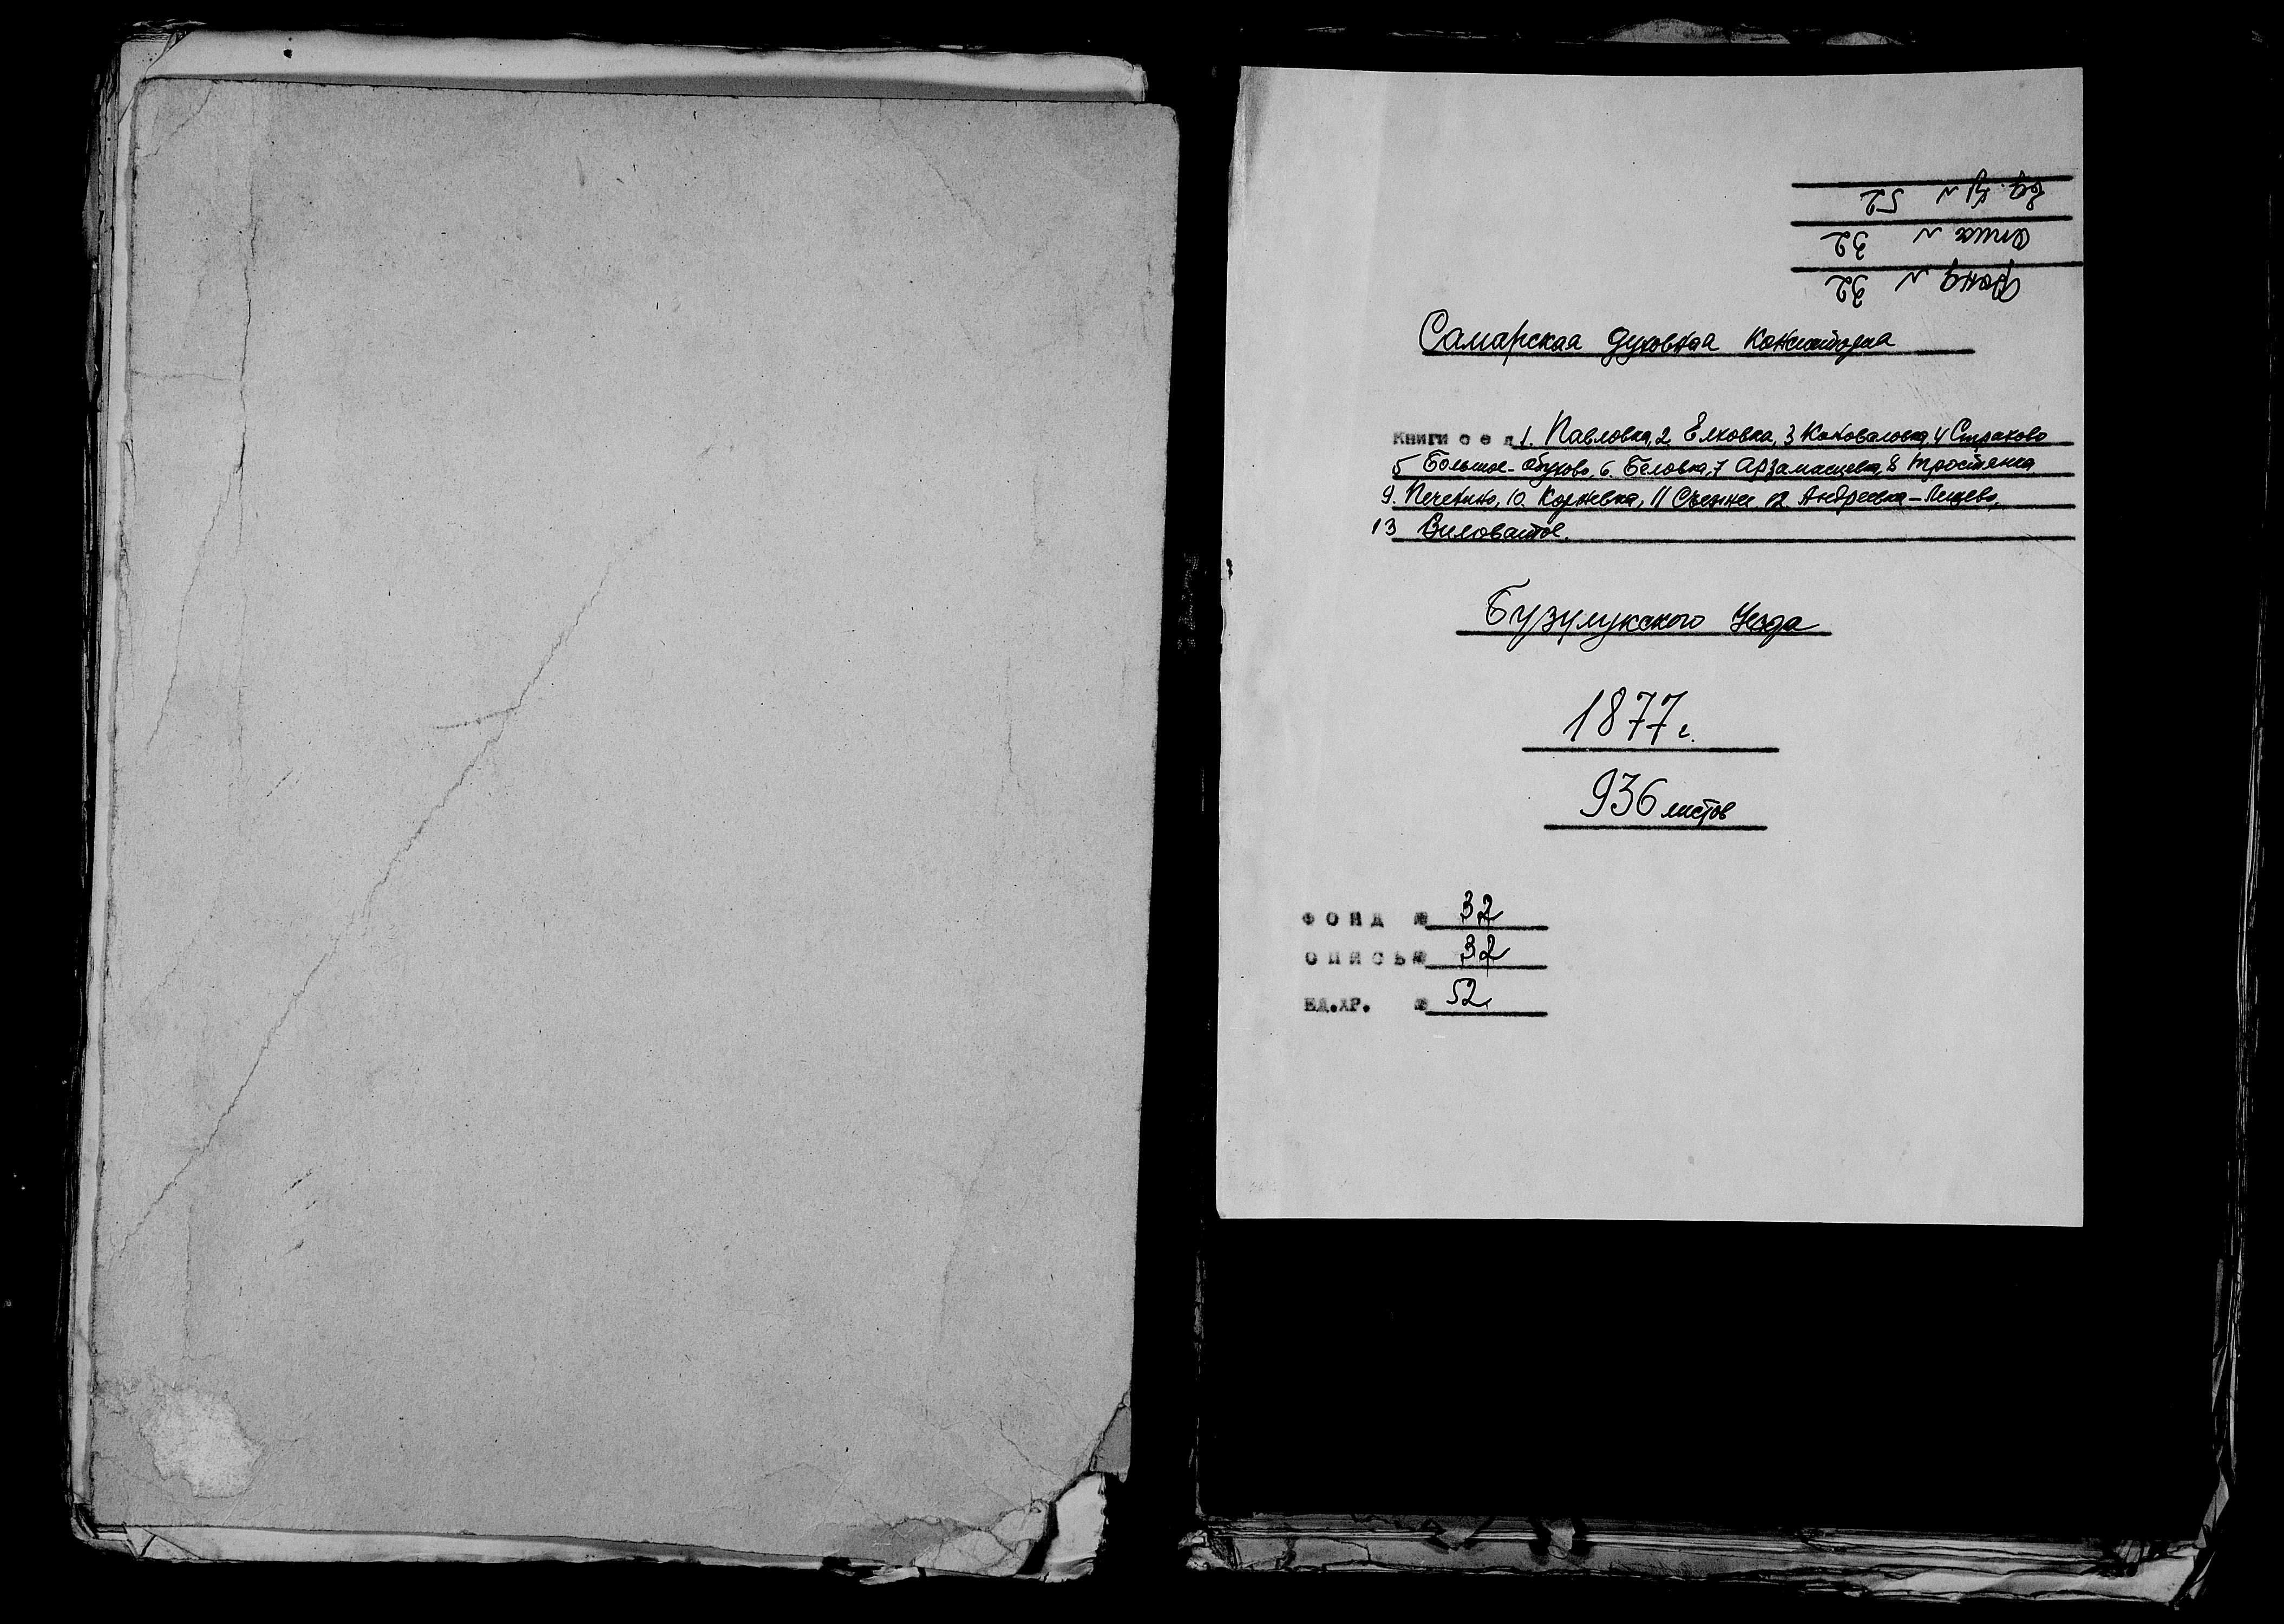 Ед. хр. № 52
Опись № 32
Фонд № 32
Самарская духовная консистория
Книги сел 1. Павловка, 2 Елховка, 3 Коноваловка, 4 Страхово
5 Большое-Обухово, 6. Беловка, 7 Арзамасцевка, 8 Тростянка
9. Печенино, 10. Корневка, 11 Съезжее 12. Андреевка-Лещево,
13 Виловатое.
Бузулукского Уезда
1877 г.
936 листов
ФОНД № 32
ОПИСЬ № 32
ЕД.ХР. № 52